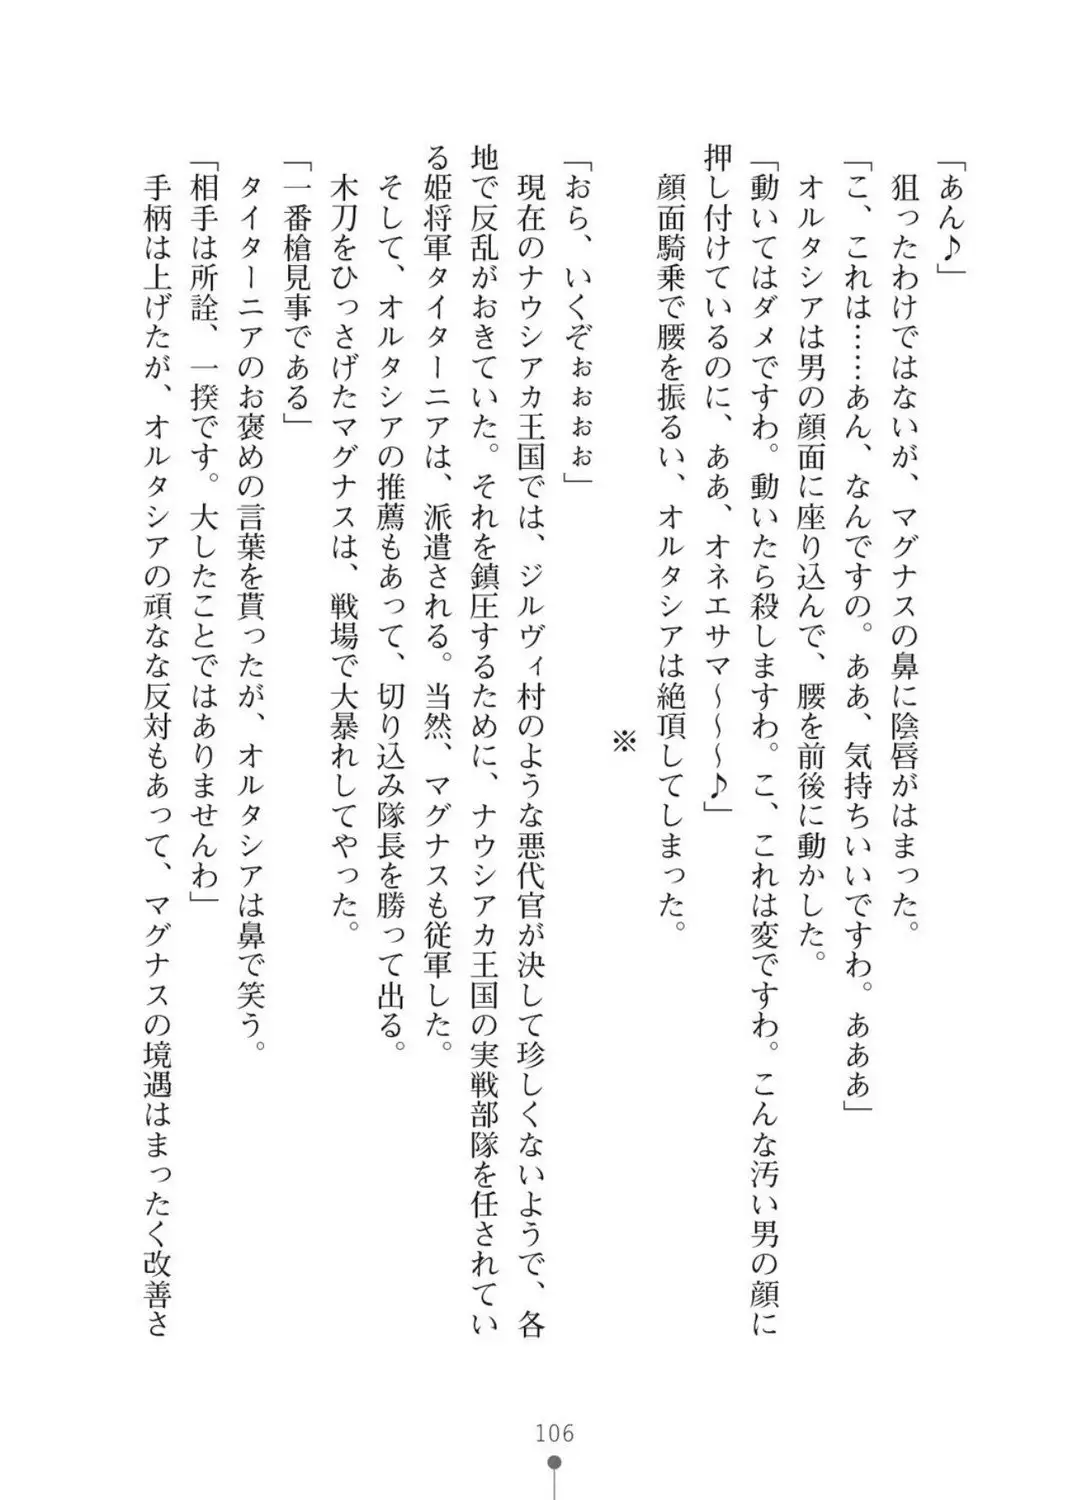 「あん♪」
　狙ったわけではないが、マグナスの鼻に陰唇がはまった。
「こ、これは……あん、なんですの。ああ、気持ちいいですわ。あああ」
　オルタシアは男の顔面に座り込んで、腰を前後に動かした。
「動いてはダメですわ。動いたら殺しますわ。こ、これは変ですわ。こんな汚い男の顔に
押し付けているのに、ああ、オネエサマ～～～♪」
　顔面騎乗で腰を振るい、オルタシアは絶頂してしまった。
※
「おら、いくぞぉぉぉぉ」
　現在のナウシアカ王国では、ジルヴィ村のような悪代官が決して珍しくないようで、各
地で反乱がおきていた。それを鎮圧するために、ナウシアカ王国の実戦部隊を任されてい
る姫将軍タイターニアは、派遣される。当然、マグナスも従軍した。
　そして、オルタシアの推薦もあって、切り込み隊長を勝って出る。
　木刀をひっさげたマグナスは、戦場で大暴れしてやった。
「一番槍見事である」
　タイターニアのお褒めの言葉を貰ったが、オルタシアは鼻で笑う。
「相手は所詮、一揆です。大したことではありませんわ」
　手柄は上げたが、オルタシアの頑なな反対もあって、マグナスの境遇はまったく改善さ
106